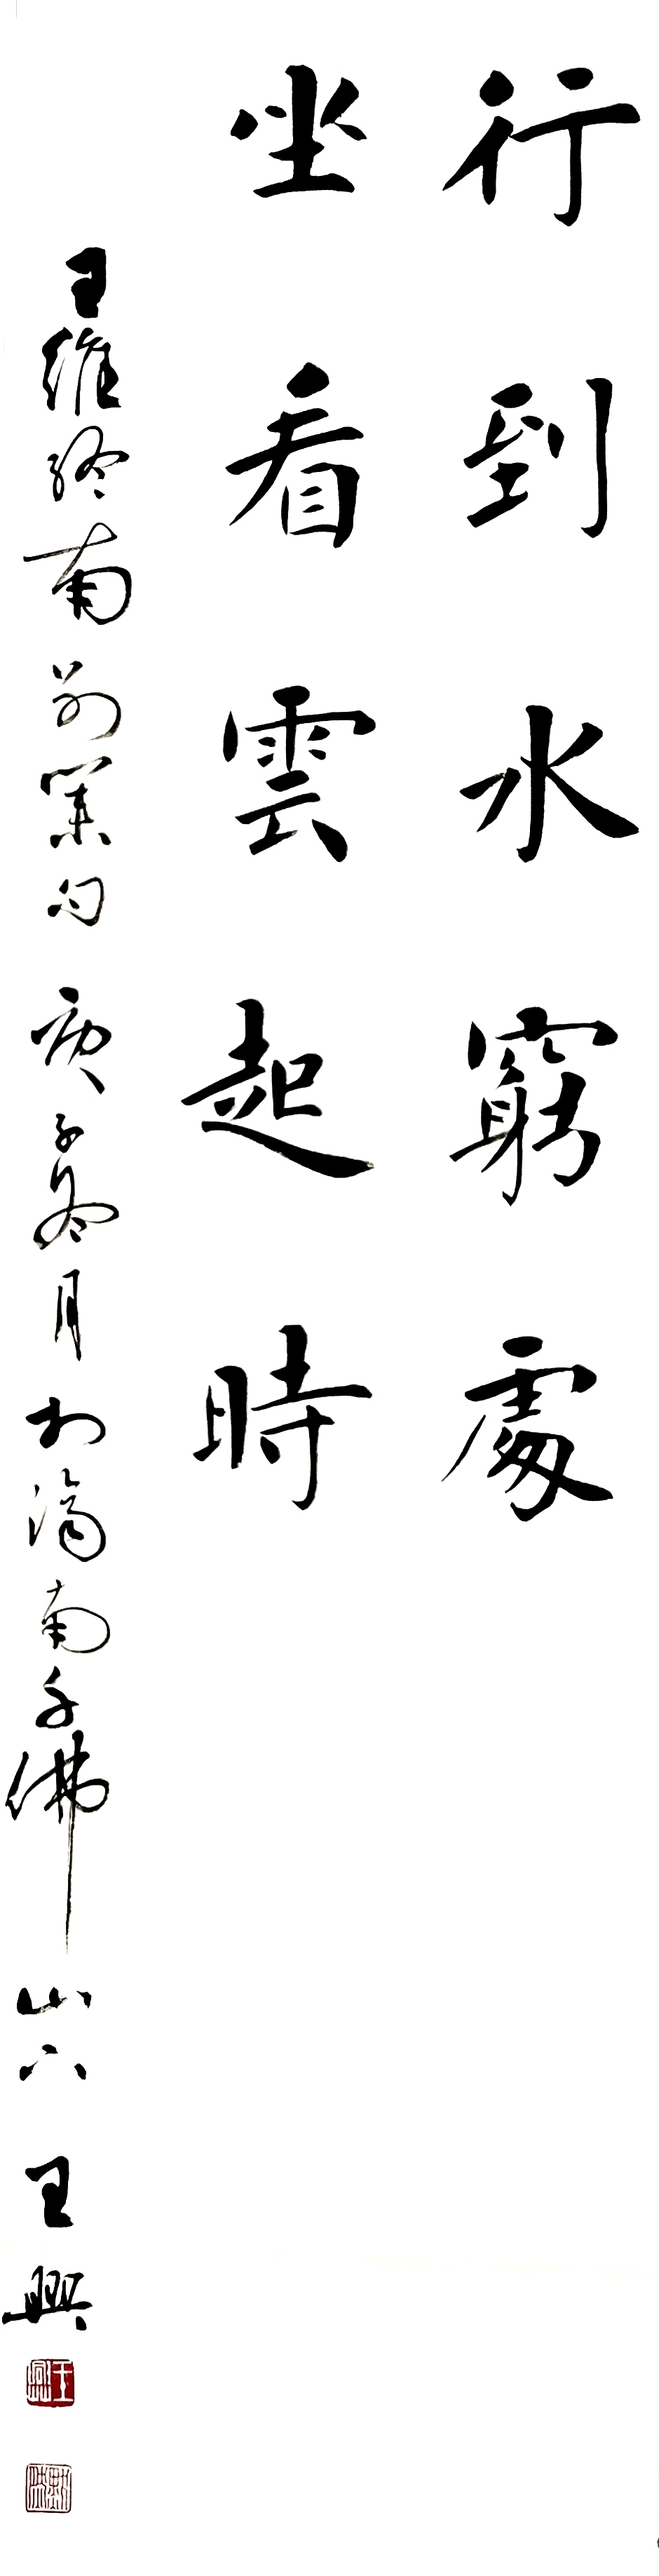 行到水窮處
坐看雲起時
王維終南別業句 庚子冬月於濟南千佛山下 王興